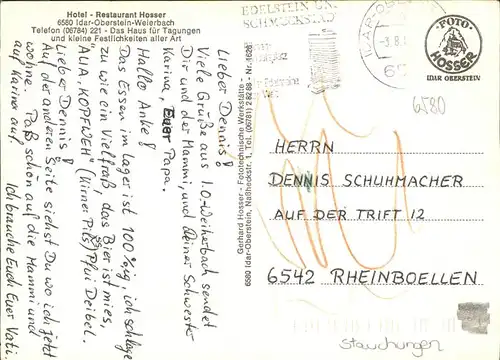 Hotel - Restaurant Hosser
6580 Idar-Oberstein-Weierbach
Telefon (06784) 221 - Das Haus für Tagungen
und kleine Festlichkeiten aller Art
Lieber Dennis!
Viele Grüße aus I.O-Weiherbach sendet
Dir und der Mammi, und Deiner Schwester
Karina, Euer Papa.
Hallo Anke!
Das Essen im Lager ist 100%ig, ich schlage
zu wie ein Vielfraß, das Bier ist mies,
"ALIA KOPFWEH" (Kirner Pils) Pfui Deibel.
Lieber Dennis!
Auf der anderen Seite siehst Du wo ich jetzt
wohne. Paß schön auf die Mammi und
auf Karina auf. Ich brauche Euch Euer Vati
Gerhard Hosser - Fototechnische Werkstätte - Nr. 1626
6580 Idar-Oberstein, Naßheckstr. 1, Tel. (06781) 2 82 88
EDELSTEIN UN
SCHMUCKSTAD
IDAR-OBERSTEIN
-3.8.
65
FOTO
HOSSER
IDAR OBERSTEIN
6580
HERRN
DENNIS SCHUHMACHER
AUF DER TRIFT 12
6542 RHEINBOELLEN
Stauchungen